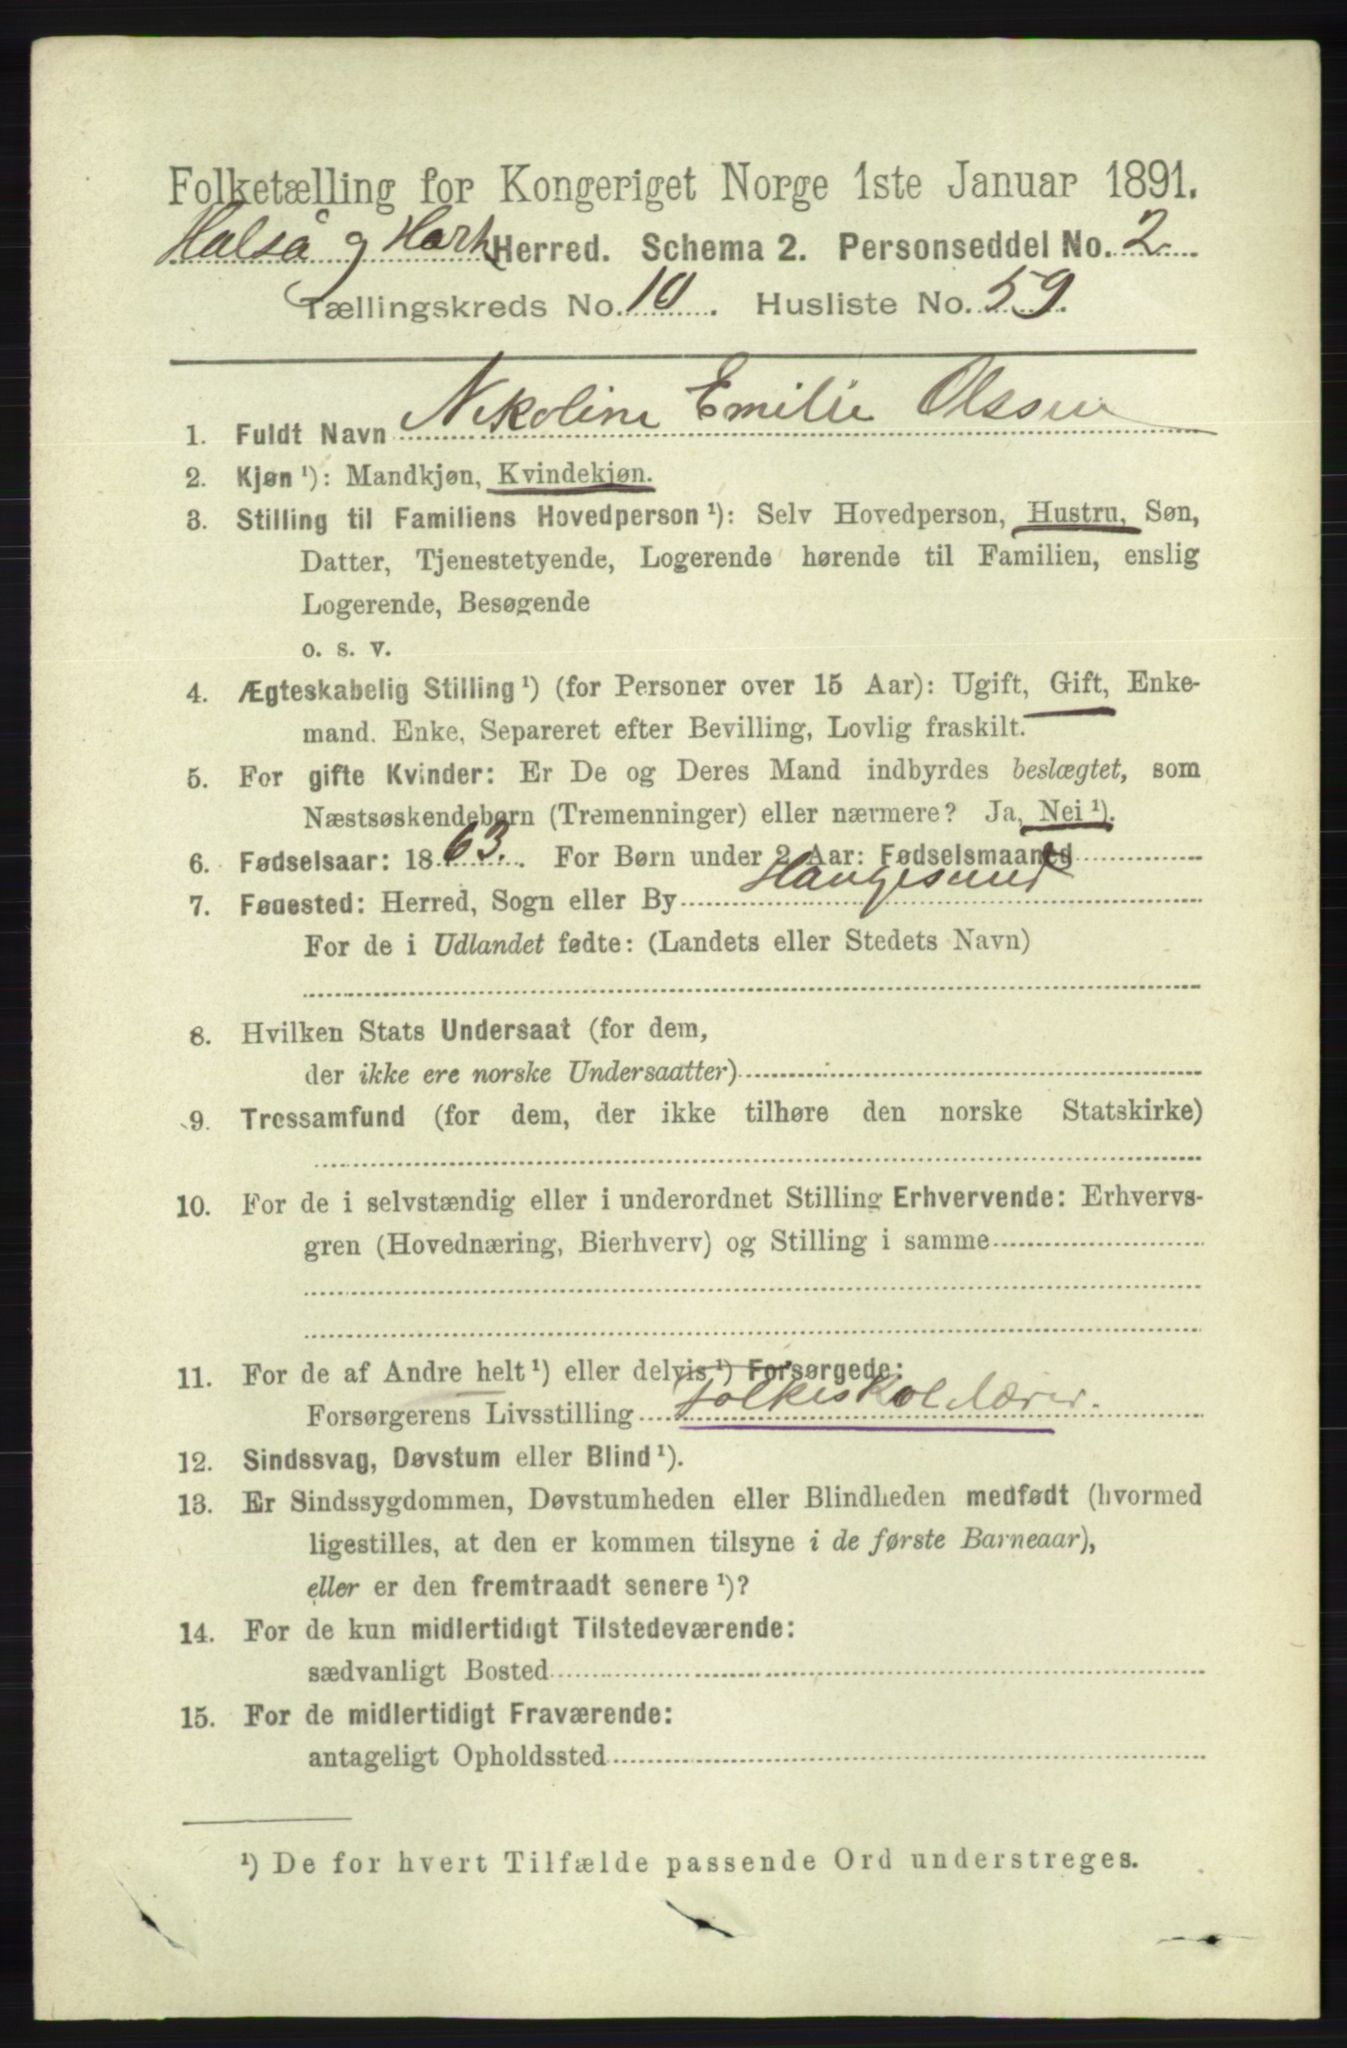 Folketælling for Kongeriget Norge 1ste Januar 1891.
Halså og Hark Herred. Schema 2. Personseddel No. 2.
Tællingskreds No. 10. Husliste No. 59.
1. Fuldt Navn Nikoline Emilie Olssen
2. Kjøn ¹): Mandkjøn, Kvindekjøn.
3. Stilling til Familiens Hovedperson ¹): Selv Hovedperson, Hustru, Søn,
Datter, Tjenestetyende, Logerende hørende til Familien, enslig
Logerende, Besøgende
o. s. v.
4. Ægteskabelig Stilling ¹) (for Personer over 15 Aar): Ugift, Gift, Enke-
mand. Enke, Separeret efter Bevilling, Lovlig fraskilt.
5. For gifte Kvinder: Er De og Deres Mand indbyrdes beslægtet, som
Næstsøskendebørn (Tremenninger) eller nærmere? Ja, Nei ¹).
6. Fødselsaar: 1863. For Børn under 2 Aar: Fødselsmaaned
7. Fødested: Herred, Sogn eller By Haugesund
For de i Udlandet fødte: (Landets eller Stedets Navn)
8. Hvilken Stats Undersaat (for dem,
der ikke ere norske Undersaatter)
9. Trossamfund (for dem, der ikke tilhøre den norske Statskirke)
10. For de i selvstændig eller i underordnet Stilling Erhvervende: Erhvervs-
gren (Hovednæring, Bierhverv) og Stilling i samme
11. For de af Andre helt ¹) eller delvis ¹) Forsørgede:
Forsørgerens Livsstilling Folkeskolelærer.
12. Sindssvag, Døvstum eller Blind ¹).
13. Er Sindssygdommen, Døvstumheden eller Blindheden medfødt (hvormed
ligestilles, at den er kommen tilsyne i de første Barneaar),
eller er den fremtraadt senere ¹)?
14. For de kun midlertidigt Tilstedeværende:
sædvanligt Bosted
15. For de midlertidigt Fraværende:
antageligt Opholdssted
¹) De for hvert Tilfælde passende Ord understreges.